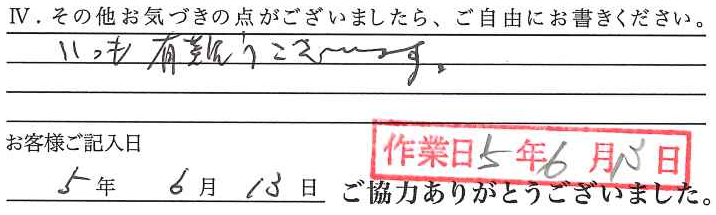 Ⅳ．その他お気づきの点がございましたら、ご自由にお書きください。
いつも有難うございます。
お客様ご記入日
作業日5年6月13日
5年 6月 13日 ご協力ありがとうございました。